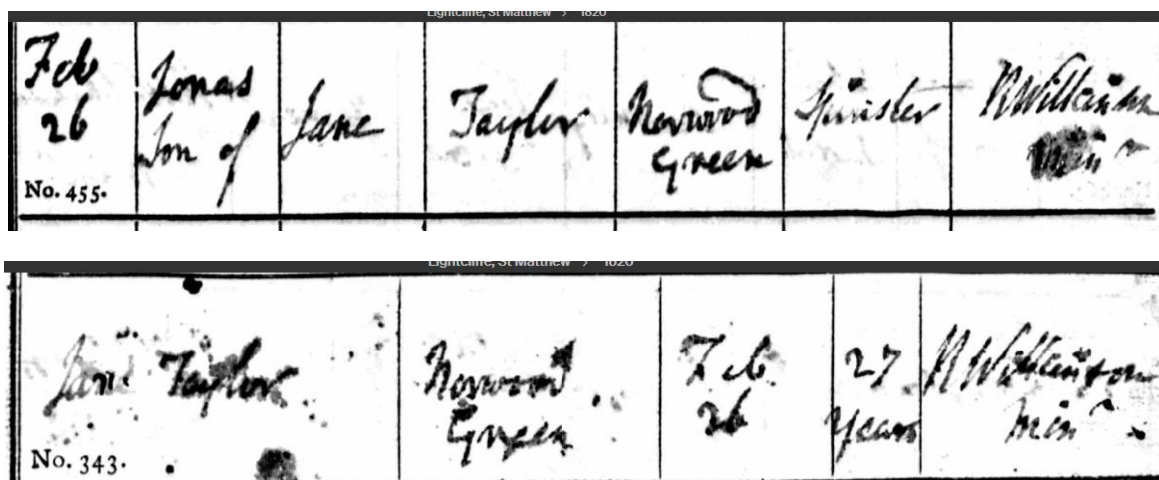 Lightcliffe, St Matthew > 1820
Feb
26
No. 455.
Jonas
Son of
Jane
Taylor
Norwood
Green
Spinster
R Wilkinson
Min r
Lightcliffe, St Matthew > 1820
Jane Taylor
No. 343.
Norwood
Green
Feb
26
27
years
R Wilkinson
Min r